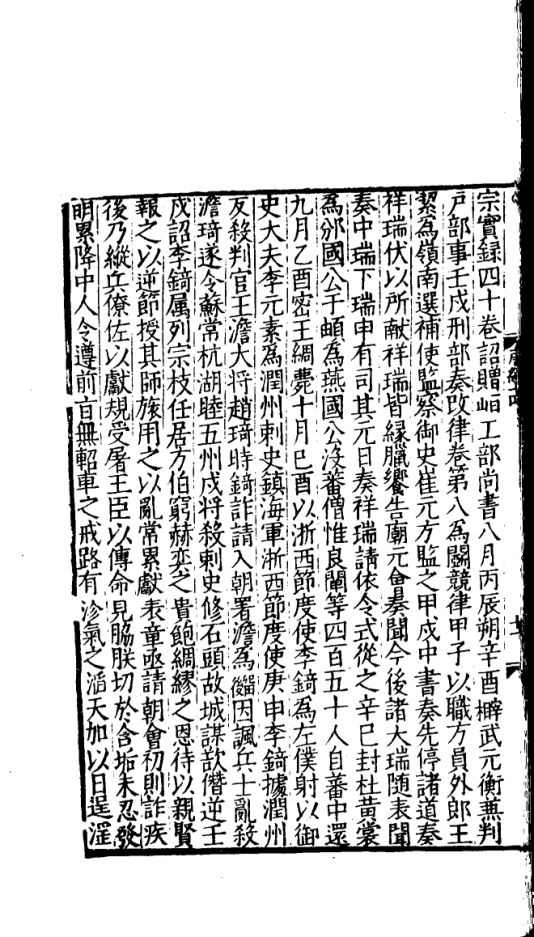 宗實録四十卷詔贈峘工部尚書八月丙辰朔辛酉檡武元衡兼判
戸部事壬戌刑部奏改律卷第八爲鬬競律甲子以職方員外郎王
絜爲嶺南選補使監察御史崔元方監之甲戌中書奏先停諸道奏
祥瑞伏以所獻祥瑞皆縁臘饗告廟元會奏聞今後諸大瑞隨表聞
奏中瑞下瑞申有司其元日奏祥瑞請依令式從之辛巳封杜黄裳
爲邠國公于頔爲燕國公没蕃僧惟良闡等四百五十人自蕃中還
九月乙酉密王綢薨十月己酉以浙西節度使李錡爲左僕射以御
史大夫李元素爲潤州刺史鎮海軍浙西節度使庚申李錡據潤州
反殺判官王澹大将趙琦時錡詐請入朝署澹爲留因諷兵士亂殺
澹琦遂令蘇常杭湖睦五州戍将殺刺史修石頭故城謀欲僭逆壬
戌詔李錡属列宗枝任居方伯窮赫奕之貴飽綢繆之恩待以親賢
報之以逆節授其師旅用之以亂常累獻表章亟請朝會初則詐疾
後乃縱兵僚佐以獻規受屠王臣以傳命見脇朕切於含垢未忍發
明累降中人令遵前旨無軺車之戒路有沴氣之滔天加以日逞滛